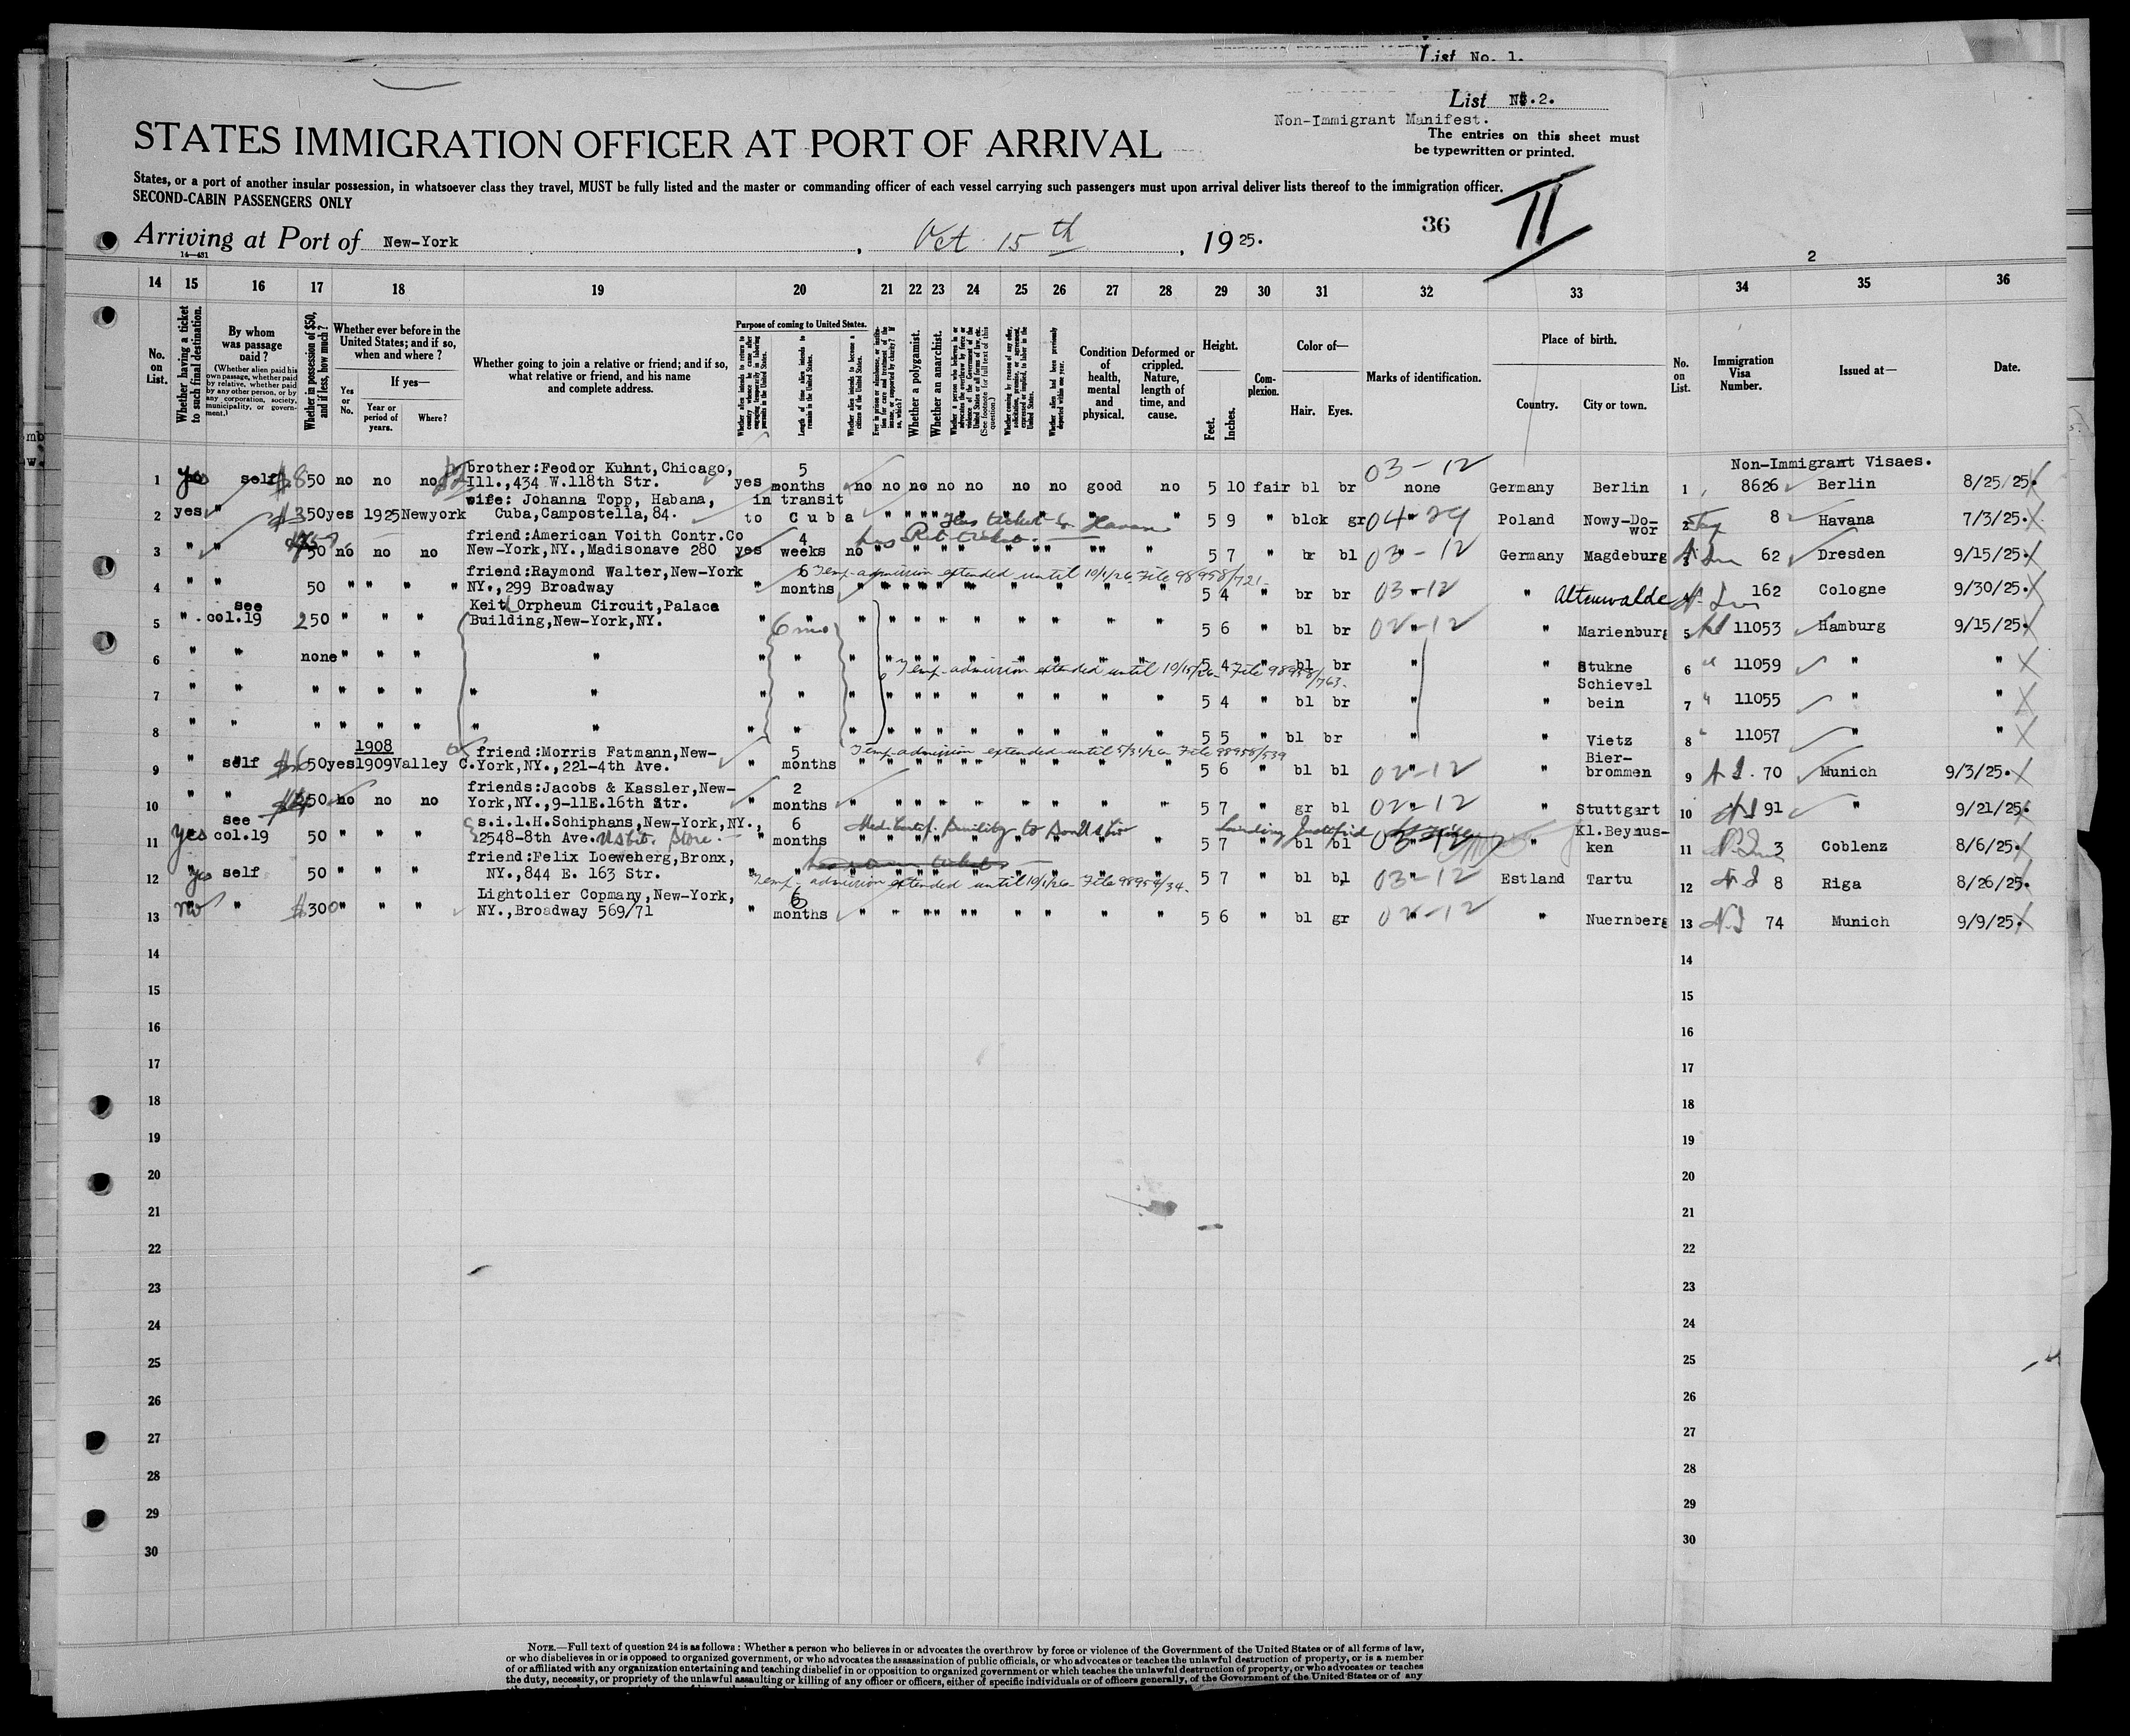 List No. 1.
List No. 2.
Non-Immigrant Manifest.
The entries on this sheet must
be typewritten or printed.
STATES IMMIGRATION OFFICER AT PORT OF ARRIVAL
States, or a port of another insular possession, in whatsoever class they travel, MUST be fully listed and the master or commanding officer of each vessel carrying such passengers must upon arrival deliver lists thereof to the immigration officer.
SECOND-CABIN PASSENGERS ONLY
36 II
Arriving at Port of New-York, Oct 15th, 1925.
14—431
2
14 15 16 17 18 19 20 21 22 23 24 25 26 27 28 29 30 31 32 33 34 35 36
No. on List.
Whether having a ticket to such final destination.
By whom was passage paid?
(Whether alien paid his own passage, whether paid by relative, whether paid by any other person, or by any corporation, society, municipality, or government.)
Whether in possession of $50, and if less, how much?
Whether ever before in the United States; and if so, when and where?
If yes—
Yes or No.
Year or period of years.
Where?
Whether going to join a relative or friend; and if so, what relative or friend, and his name and complete address.
Purpose of coming to United States.
Length of time alien intends to remain in the United States.
Whether alien intends to become a citizen of the United States.
Whether a polygamist.
Whether an anarchist.
(See footnote for full text of this question.)
Condition of health, mental and physical.
Deformed or crippled. Nature, length of time, and cause.
Height.
Feet. Inches.
Complexion.
Color of—
Hair. Eyes.
Marks of identification.
Place of birth.
Country. City or town.
No. on List.
Immigration Visa Number.
Issued at—
Date.
Non-Immigrant Visaes.
1 yes self $850 no no no brother:Feodor Kuhnt,Chicago, Ill.,434 W.118th Str. yes 5 months no no no no no no no good no 5 10 fair bl br 03-12 none Germany Berlin 1 8626 Berlin 8/25/25.
2 yes " $350 yes 1925 Newyork wife: Johanna Topp, Habana, Cuba,Campostella,84. in transit to Cuba " " " " Has ticket to Havana " 5 9 " blck gr 04-29 Poland Nowy-Dowor 2 8 Havana 7/3/25.
3 " " 50 no no no friend:American Voith Contr.Co New-York,NY.,Madisonave 280 yes 4 weeks no " " " " has Ret ticket. " " " " 5 7 " br bl 03-12 Germany Magdeburg 3 62 Dresden 9/15/25.
4 " " 50 " " " " friend:Raymond Walter,New-York NY.,299 Broadway " 6 months Temp. admission extended until 10/1/26 File 98958/721- " " " " " " " " 5 4 " br br 03-12 " Altenwalde 162 Cologne 9/30/25.
5 " see col.19 250 " " " Keith Orpheum Circuit,Palace Building,New-York,NY. " " 6 mo " " " " " " " " " 5 6 " bl br 02-12 " Marienburg 5 11053 Hamburg 9/15/25.
6 " " none " " " " " " " " " " " " " " " 5 4 " bl br " " Stukne 6 11059 " "
Temp. admission extended until 10/15/26- File 98958/763.
7 " " " " " " " " " " " " " " " " " " " 5 4 " bl br " " Schievelbein 7 11055 " "
8 " " " " " " " " " " " " " " " " " " " 5 5 " bl br " " Vietz 8 11057 " "
9 " self 50 yes 1908 1909 Valley C. friend:Morris Fatmann,New-York,NY.,221-4th Ave. " 5 months Temp. admission extended until 5/31/26 File 98958/539 " " " " " " " " 5 6 " bl bl 02-12 " Bierbrommen 9 70 Munich 9/3/25.
10 " " 50 no no no friends:Jacobs & Kassler,New-York,NY.,9-11E.16th Str. " 2 months " " " " " " " " " 5 7 " gr bl 02-12 " Stuttgart 10 91 " 9/21/25
11 yes see col.19 50 " " " s.i.l.H.Schiphans,New-York,NY., 2548-8th Ave. " 6 months Med. Certif. Senility " " " " " " " " 5 7 Landing " bl bl 03-12 " Kl.Beynusken 11 3 Coblenz 8/6/25.
12 yes self 50 " " " friend:Felix Loeweherg,Bronx, NY.,844 E. 163 Str. " " " " " " " " " " 5 7 " bl bl 03-12 Estland Tartu 12 8 Riga 8/26/25.
Temp. admission extended until 10/1/26- File 98959/34-
13 no " $300 " " " Lightolier Copmany,New-York, NY.,Broadway 569/71 " 6 months " " " " " " " " " 5 6 " bl gr 02-12 " Nuernberg 13 74 Munich 9/9/25.
14 14
15 15
16 16
17 17
18 18
19 19
20 20
21 21
22 22
23 23
24 24
25 25
26 26
27 27
28 28
29 29
30 30
NOTE.—Full text of question 24 is as follows: Whether a person who believes in or advocates the overthrow by force or violence of the Government of the United States or of all forms of law,
or who disbelieves in or is opposed to organized government, or who advocates the assassination of public officials, or who advocates or teaches the unlawful destruction of property, or is a member
of or affiliated with any organization entertaining and teaching disbelief in or opposition to organized government or which teaches the unlawful destruction of property, or who advocates or teaches
the duty, necessity, or propriety of the unlawful assaulting or killing of any officer or officers, either of specific individuals or of officers generally, of the Government of the United States or of any